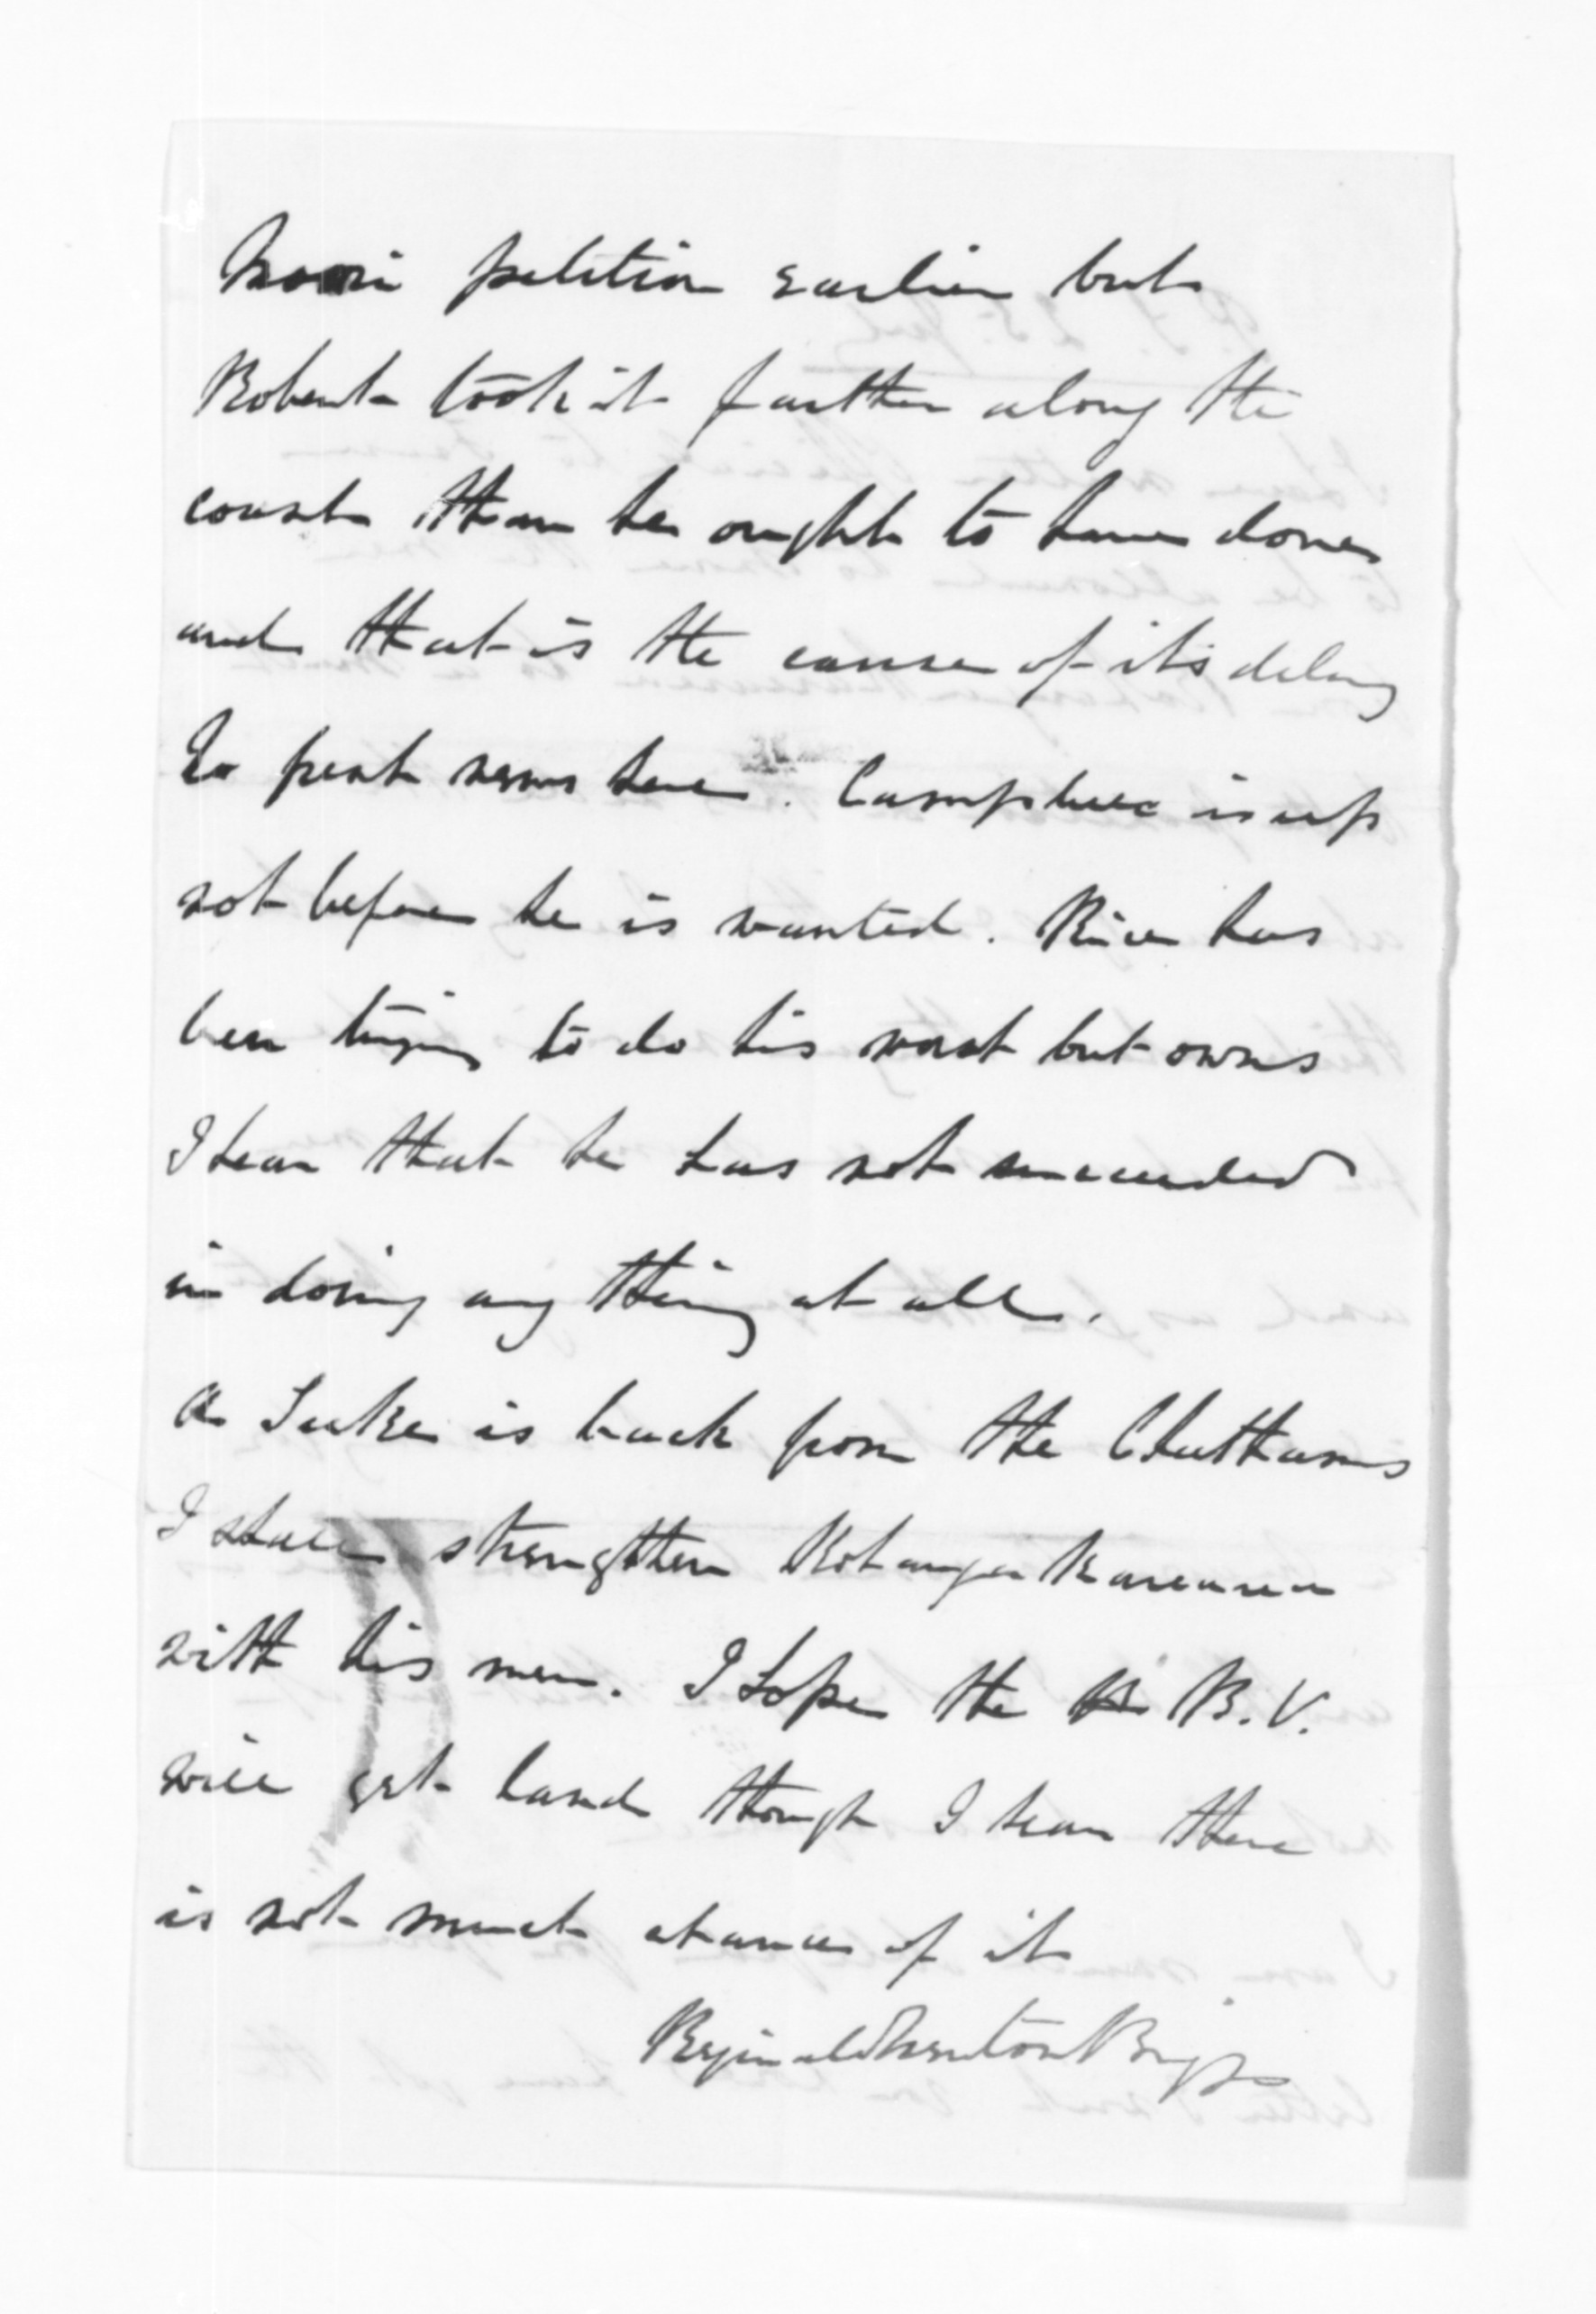 Maori petition earlier but
Robert took it further along the
coast than he ought to have done
and that is the cause of its delay
No fresh news here. Campbell is up
not before he is wanted. Rice has
been trying to do his worst but owns
I hear that he has not succeeded
in doing any thing at all.
As Luke is back from the Chathams
I shall strengthen
with his men. I hope the B.V.
will get land though I hear there
is not much chance of it
Reginald Newton Biggs